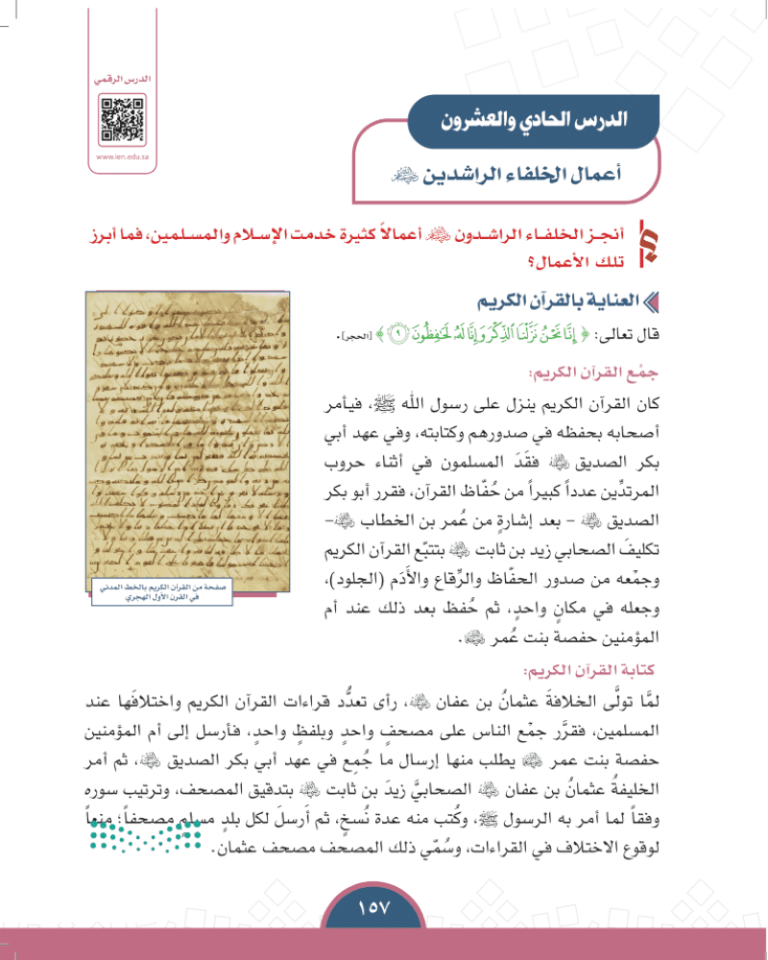 الدرس الرقمي
www.ien.edu.sa
الدرس الحادي والعشرون
أعمال الخلفاء الراشدين ﷺ
أنجـز الخلفـاء الراشـدون أعمالاً كثيرة خدمت الإسـلام والمسـلمين، فما أبرز
تلك الأعمال؟
العناية بالقرآن الكريم
قال تعالى: ﴿ إِنَّا نَحْنُ نَزَّلْنَا ٱلذِّكْرَ وَإِنَّا لَهُۥ لَحَٰفِظُونَ ٩ ﴾ [الحجر].
جمْع القرآن الكريم:
كان القرآن الكريم ينزل على رسول الله ﷺ، فيأمر
أصحابه بحفظه في صدورهم وكتابته، وفي عهد أبي
بكر الصديق فقَدَ المسلمون في أثناء حروب
المرتدِّين عدداً كبيراً من حُفّاظ القرآن، فقرر أبو بكر
الصديق – بعد إشارةٍ من عُمر بن الخطاب –
تكليفَ الصحابي زيد بن ثابت بتتبّع القرآن الكريم
وجمْعه من صدور الحفّاظ والرِّقاع والأَدَم (الجلود)،
وجعله في مكانٍ واحدٍ، ثم حُفظ بعد ذلك عند أم
المؤمنين حفصة بنت عُمر .
صفحة من القرآن الكريم بالخط المدني
في القرن الأول الهجري
كتابة القرآن الكريم:
لمَّا تولَّى الخلافةَ عثمانُ بن عفان ، رأى تعدُّد قراءات القرآن الكريم واختلافَها عند
المسلمين، فقرَّر جمْع الناس على مصحفٍ واحدٍ وبلفظٍ واحدٍ، فأرسل إلى أم المؤمنين
حفصة بنت عمر يطلب منها إرسال ما جُمِع في عهد أبي بكر الصديق ، ثم أمر
الخليفةُ عثمانُ بن عفان الصحابيَّ زيدَ بن ثابت بتدقيق المصحف، وترتيب سوره
وفقاً لما أمر به الرسول ﷺ، وكُتب منه عدة نُسخٍ، ثم أَرسلَ لكل بلدٍ مسلمٍ مصحفاً؛ منعاً
لوقوع الاختلاف في القراءات، وسُمّي ذلك المصحف مصحف عثمان.
١٥٧